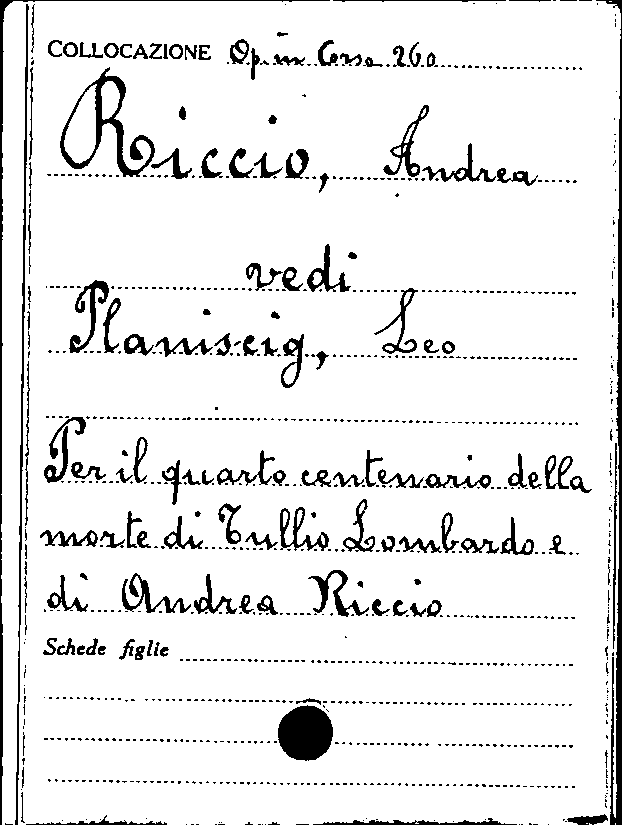 COLLOCAZIONE Op. in Corso 260
Riccio, Andrea
vedi
Planiscig, Leo
Per il quarto centenario della
morte di Tullio Lombardo e
di Andrea Riccio
Schede figlie